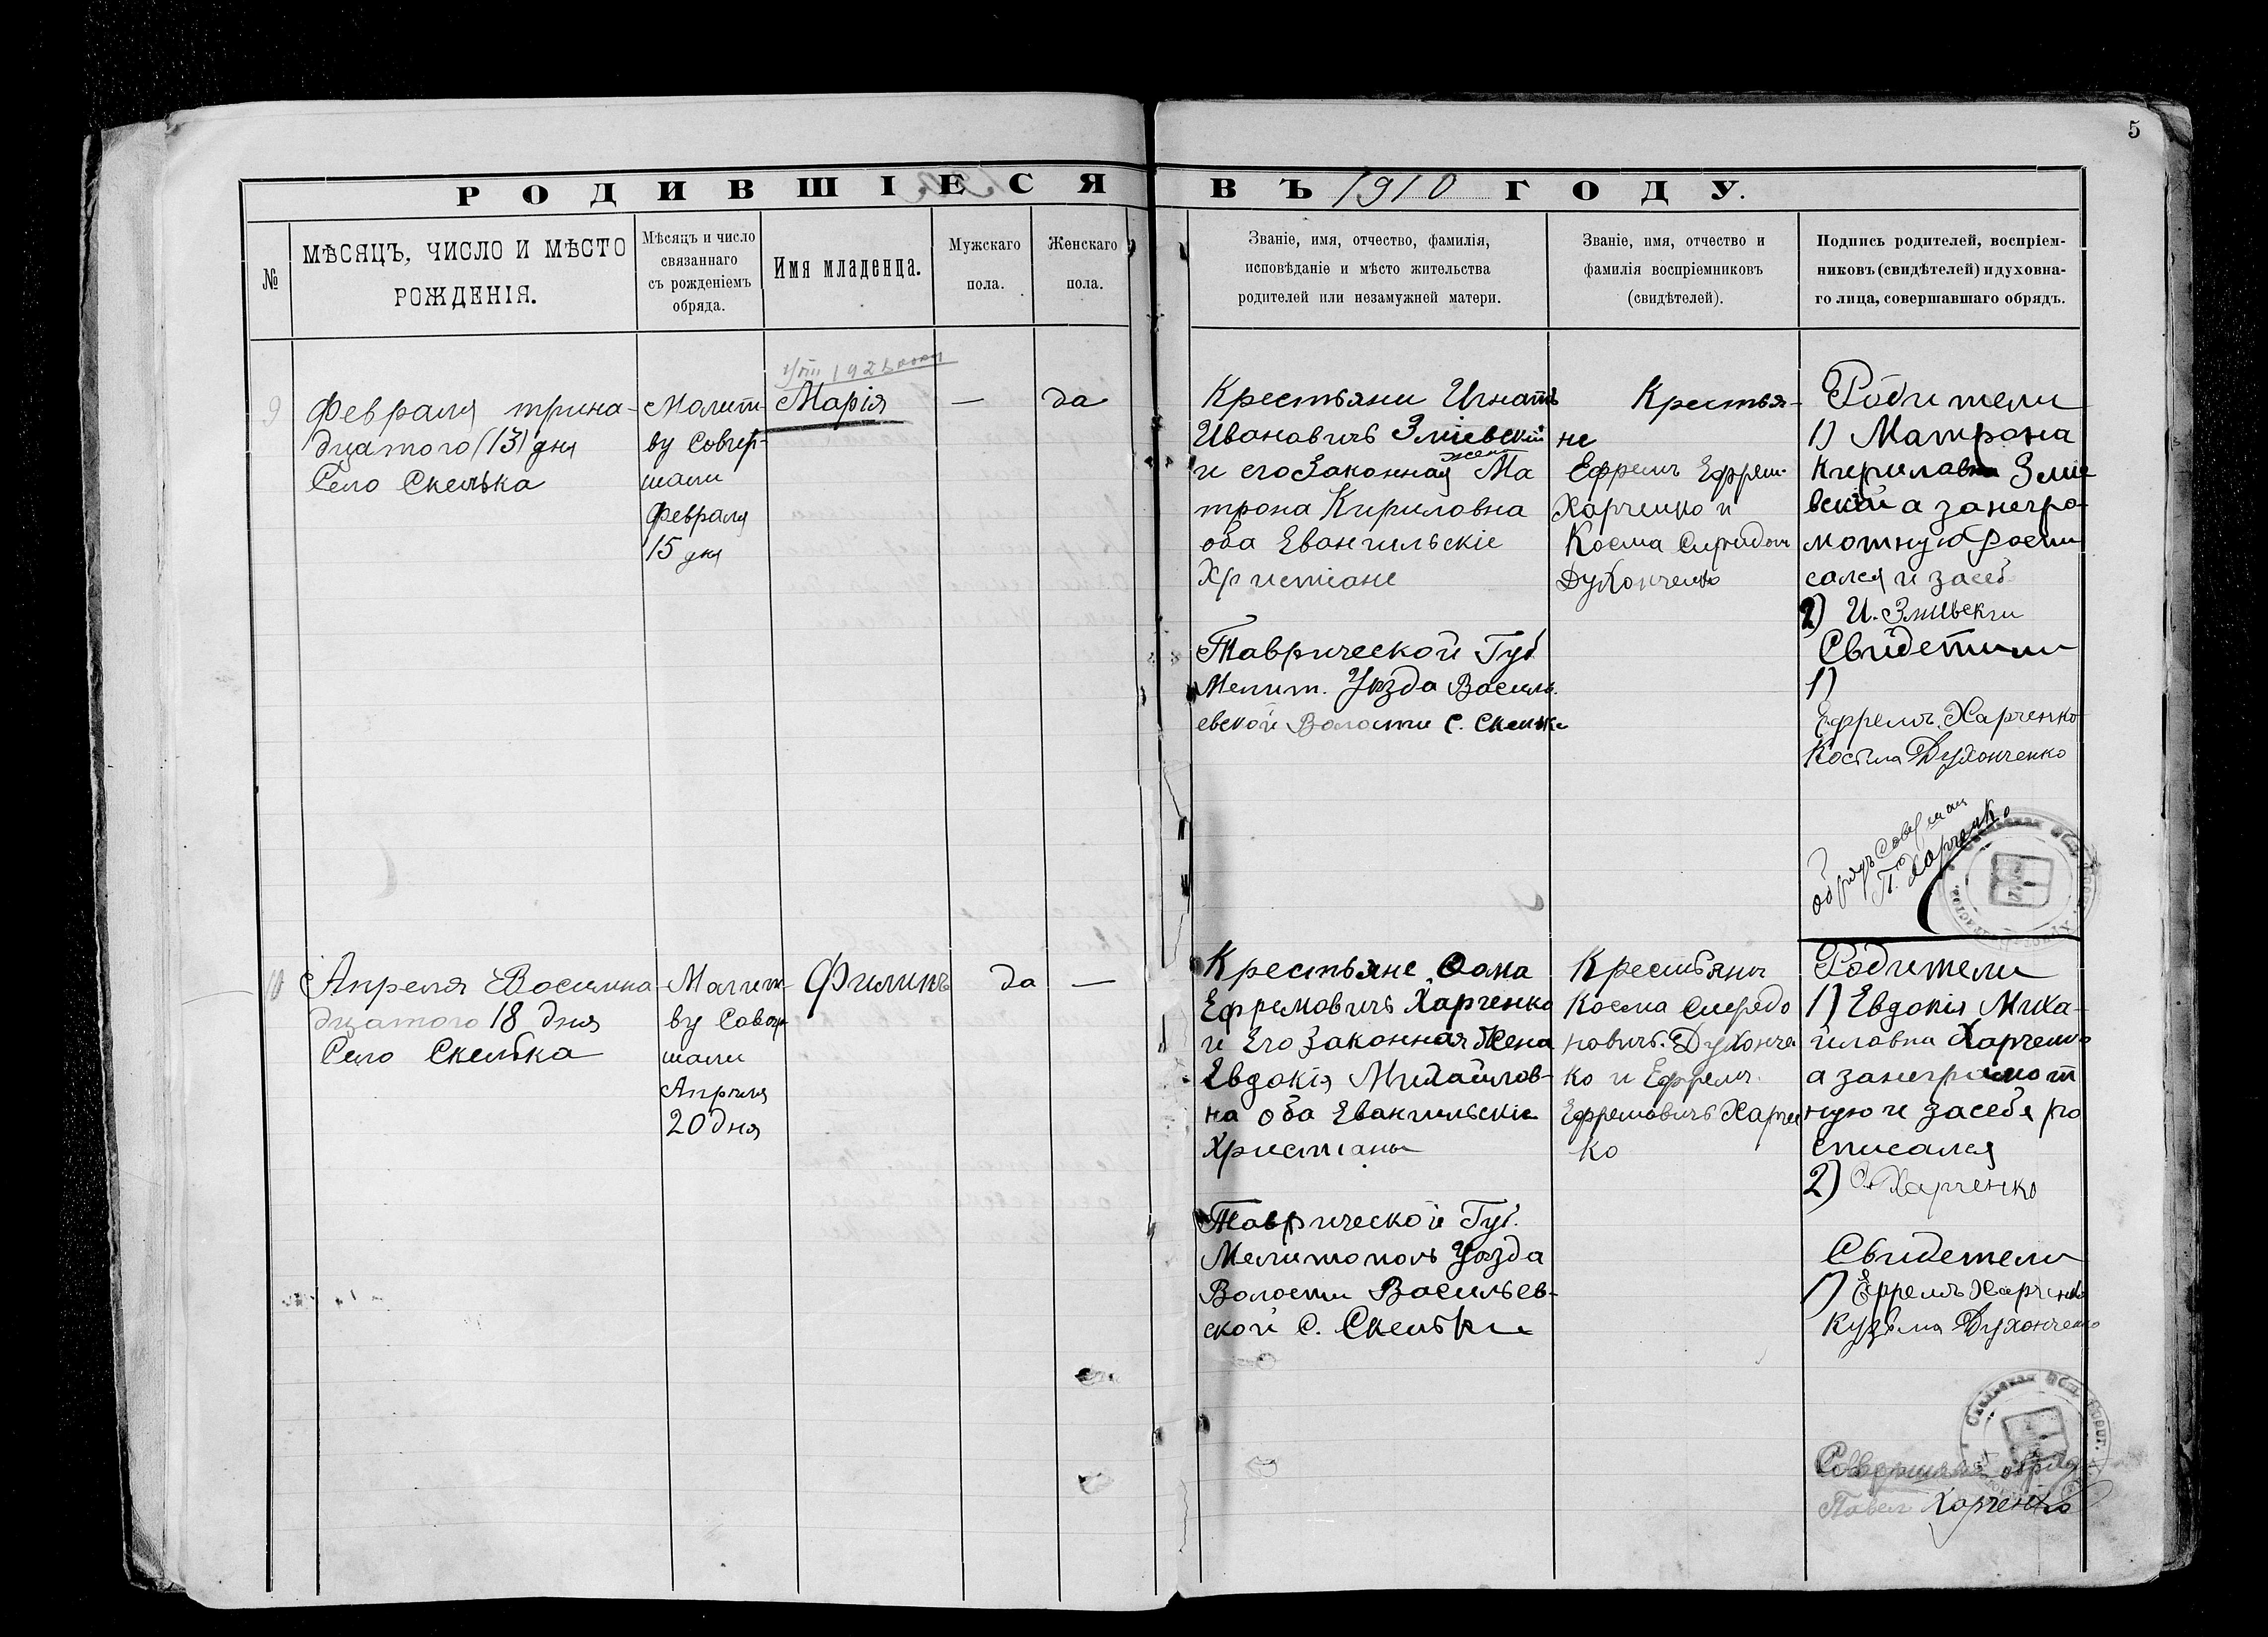 5
РОДИВШІЕСЯ ВЪ 1910 ГОДУ.
№
МѢСЯЦЪ, ЧИСЛО И МѢСТО
РОЖДЕНІЯ.
Мѣсяцъ и число
связаннаго
съ рожденіемъ
обряда.
Имя младенца.
Мужскаго
пола.
Женскаго
пола.
Званіе, имя, отчество, фамилія,
исповѣданіе и мѣсто жительства
родителей или незамужней матери.
Званіе, имя, отчество и
фамилія воспріемниковъ
(свидѣтелей).
Подпись родителей, воспріем-
никовъ (свидѣтелей) и духовна-
го лица, совершавшаго обрядъ.
9
Февраля трина-
дцатого (13) дня
Село Скелька
Молит-
ву Совер-
шали
Февраля
15 дня
Марія
—
да
Крестьяни Игнатъ
Ивановичъ Зміевскій
жена
и его Законная Ма
трона Кириловна
оба Евангильскіе
Христіане
Таврической Губ
Мелит. Уѣзда Василь.
евской Волости С. Скельки
Крестья-
не
Ефремъ Ефрем.
Харченко и
Косма Спиридон
Духонченко
Родители
1) Матрона
Кириловна Зміе
вский а занегра-
мотную роспи
сался и засеб
2) И. Зміевски
Свидетели
1)
Ефремъ Харченко
Косма Духонченко
обрядъ совершал
П. Харченко
10
Апреля Восимна-
дцатого 18 дня
Село Скелька
Молит-
ву Совер-
шали
Апреля
20 дня
Филипъ
да
—
Крестьяне Фома
Ефремовичъ Харченко
и Его Законная Жена
Евдокія Михайлов-
на оба Евангильскіе
Христіаны
Таврической Губ.
Мелитополь Уѣзда
Волости Васильев-
ской С. Скельки
Крестьяны
Косма Спередо
новичъ. Духонче
ко и Ефремъ
Ефремовичъ Харчен
ко
Родители
1) Евдокія Миха-
йловна Харченко
а занеграмот
ную и засебя ро
списался
2) Харченко
Свидетели
1) Ефремъ Харченко
Кузьма Духонченко
Совершалъ обряд
Павел Харченко